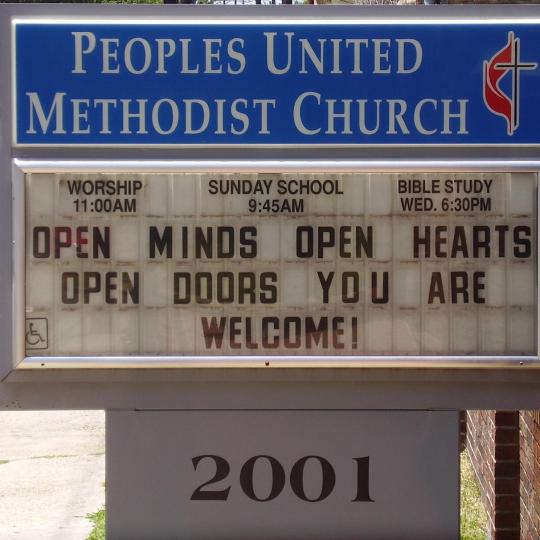 PEOPLES UNITED
METHODIST CHURCH
WORSHIP
11:00AM
SUNDAY SCHOOL
9:45AM
BIBLE STUDY
WED. 6:30PM
OPEN MINDS OPEN HEARTS
OPEN DOORS YOU ARE
WELCOME!
2001